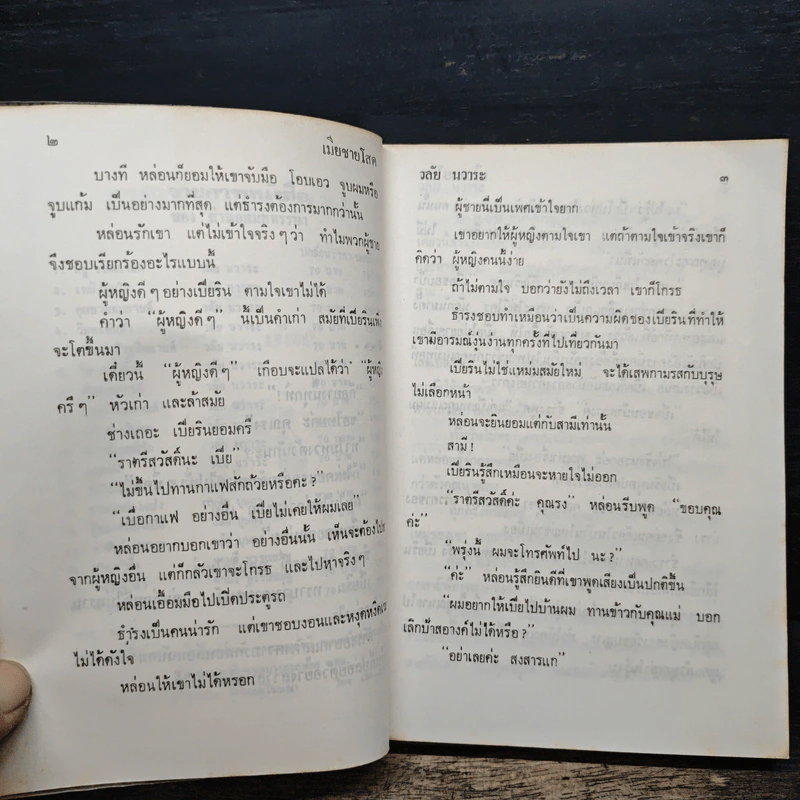 ๒
เมียชายโสด
บางที หล่อนก็ยอมให้เขาจับมือ โอบเอว จูบผมหรือ
จูบแก้ม เป็นอย่างมากที่สุด แต่ธำรงต้องการมากกว่านั้น
หล่อนรักเขา แต่ไม่เข้าใจจริง ๆ ว่า ทำไมพวกผู้ชาย
จึงชอบเรียกร้องอะไรแบบนี้
ผู้หญิงดี ๆ อย่างเบียริน ตามใจเขาไม่ได้
คำว่า “ผู้หญิงดี ๆ” นี้เป็นคำเก่า สมัยที่เบียรินเพิ่ง
จะโตขึ้นมา
เดี๋ยวนี้ “ผู้หญิงดี ๆ” เกือบจะแปลได้ว่า “ผู้หญิง
ครึ ๆ” หัวเก่า และล้าสมัย
ช่างเถอะ เบียรินยอมครึ
“ราตรีสวัสดิ์นะ เบีย”
“ไม่ขึ้นไปทานกาแฟสักถ้วยหรือคะ ?”
“เบื่อกาแฟ อย่างอื่น เบียไม่เคยให้ผมเลย”
หล่อนอยากบอกเขาว่า อย่างอื่นนั้น เห็นจะต้องไป
จากผู้หญิงอื่น แต่ก็กลัวเขาจะโกรธ และไปหาจริง ๆ
หล่อนเอื้อมมือไปเปิดประตูรถ
ธำรงเป็นคนน่ารัก แต่เขาชอบงอนและหงุดหงิดเวลา
ไม่ได้ดังใจ
หล่อนให้เขาไม่ได้หรอก
วลัย นวาระ
๓
ผู้ชายนี่เป็นเพศเข้าใจยาก
เขาอยากให้ผู้หญิงตามใจเขา แต่ถ้าตามใจเข้าจริงเขาก็
คิดว่า ผู้หญิงคนนี้ง่าย
ถ้าไม่ตามใจ บอกว่ายังไม่ถึงเวลา เขาก็โกรธ
ธำรงชอบทำเหมือนว่าเป็นความผิดของเบียรินที่ทำให้
เขามีอารมณ์งุ่นง่านทุกครั้งที่ไปเที่ยวกันมา
เบียรินไม่ใช่แหม่มสมัยใหม่ จะได้เสพกามรสกับบุรุษ
ไม่เลือกหน้า
หล่อนจะยินยอมแต่กับสามีเท่านั้น
สามี !
เบียรินรู้สึกเหมือนจะหายใจไม่ออก
“ราตรีสวัสดิ์ค่ะ คุณรง” หล่อนรีบพูด “ขอบคุณ
ค่ะ”
“พรุ่งนี้ ผมจะโทรศัพท์ไป นะ ?”
“ค่ะ” หล่อนรู้สึกยินดีที่เขาพูดเสียงเป็นปกติขึ้น
“ผมอยากให้เบียไปบ้านผม ทานข้าวกับคุณแม่ บอก
เลิกป้าสอางค์ไม่ได้หรือ ?”
“อย่าเลยค่ะ สงสารแก”